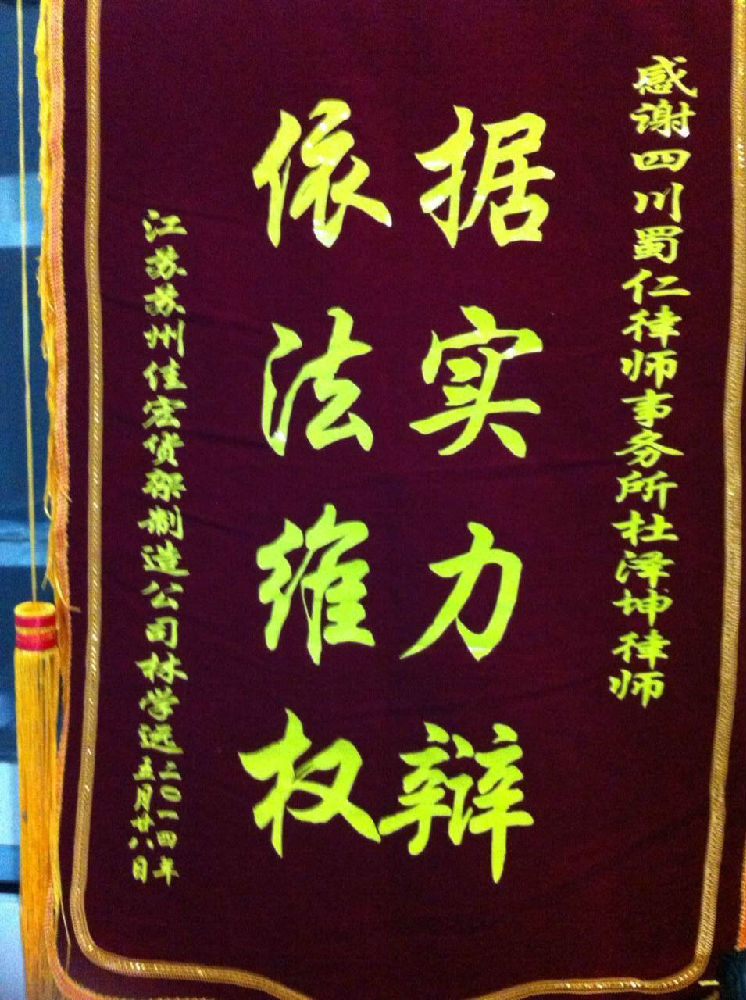 感谢四川蜀仁律师事务所杜泽坤律师
据实力辩
依法维权
江苏苏州佳宏货架制造公司林学远
二〇一四年
五月廿八日